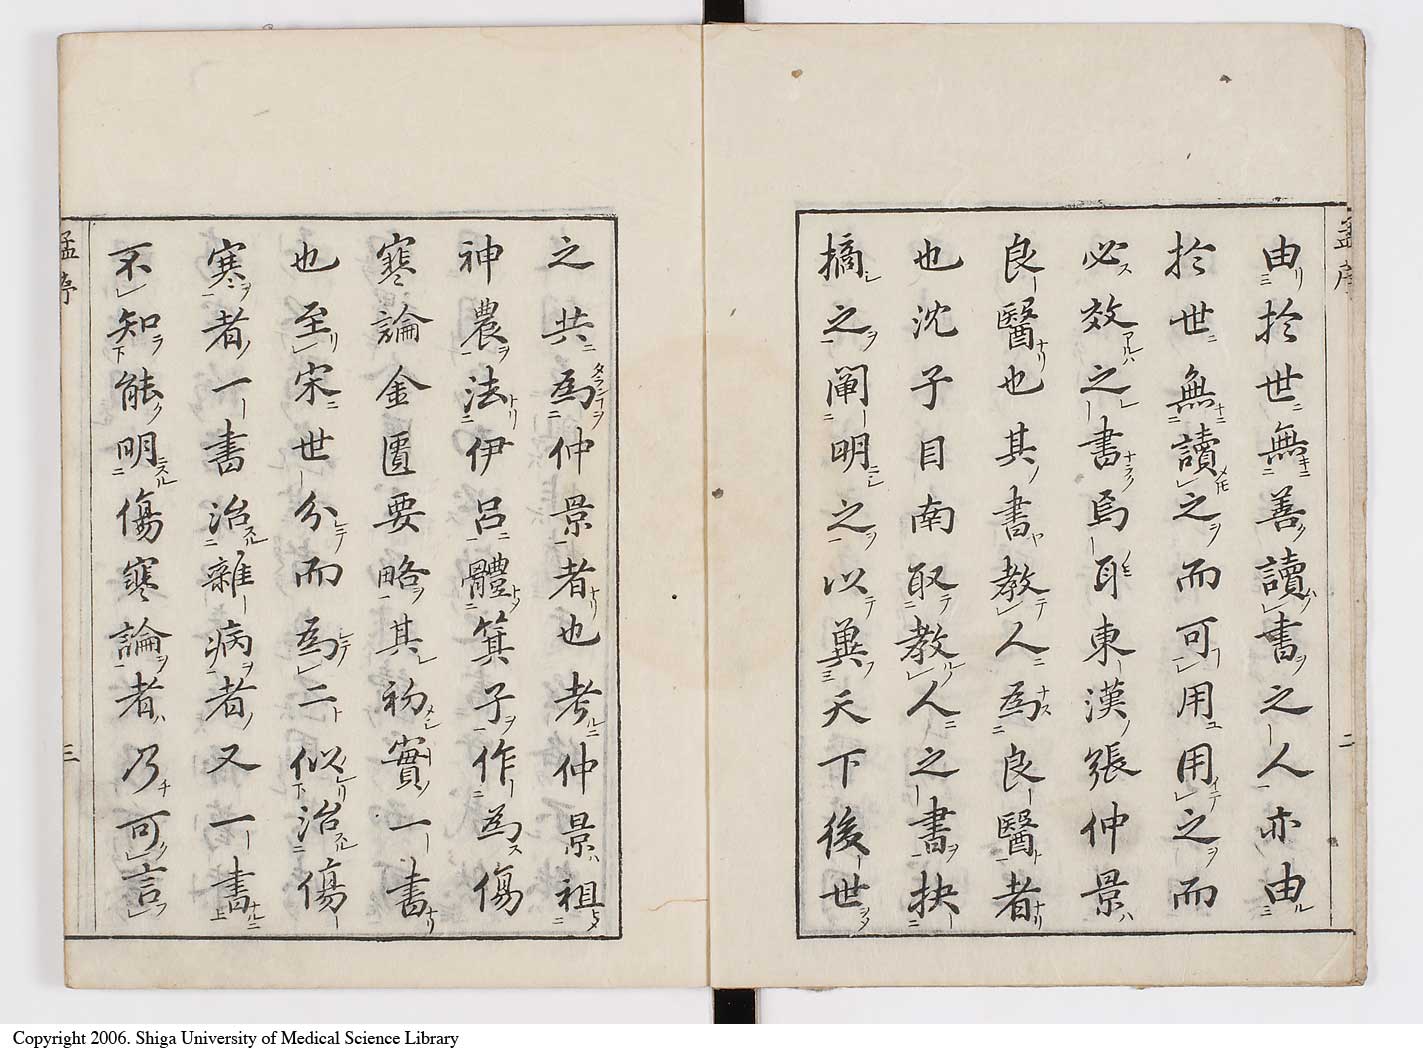 由於世無善讀書之人亦由
於世無讀之而可用用之而
必效之書焉耳東漢張仲景
良醫也其書教人為良醫者
也沈子目南取教人之書抉
摘之闡明之以冀天下後世
之共為仲景者也考仲景祖
神農法伊呂體箕子作為傷
寒論金匱要略其初實一書
也至宋世分而為二似治傷
寒者一書治雜病者又一書
不知能明傷寒論者乃可言
孟序
二
三
Copyright 2006. Shiga University of Medical Science Library